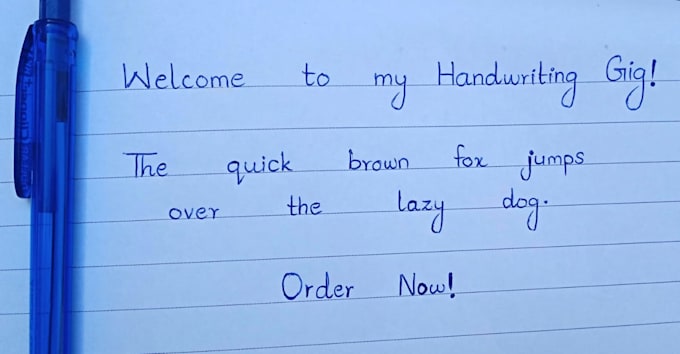 Welcome to my Handwriting Gig!
The quick brown fox jumps
over the lazy dog.
Order Now!